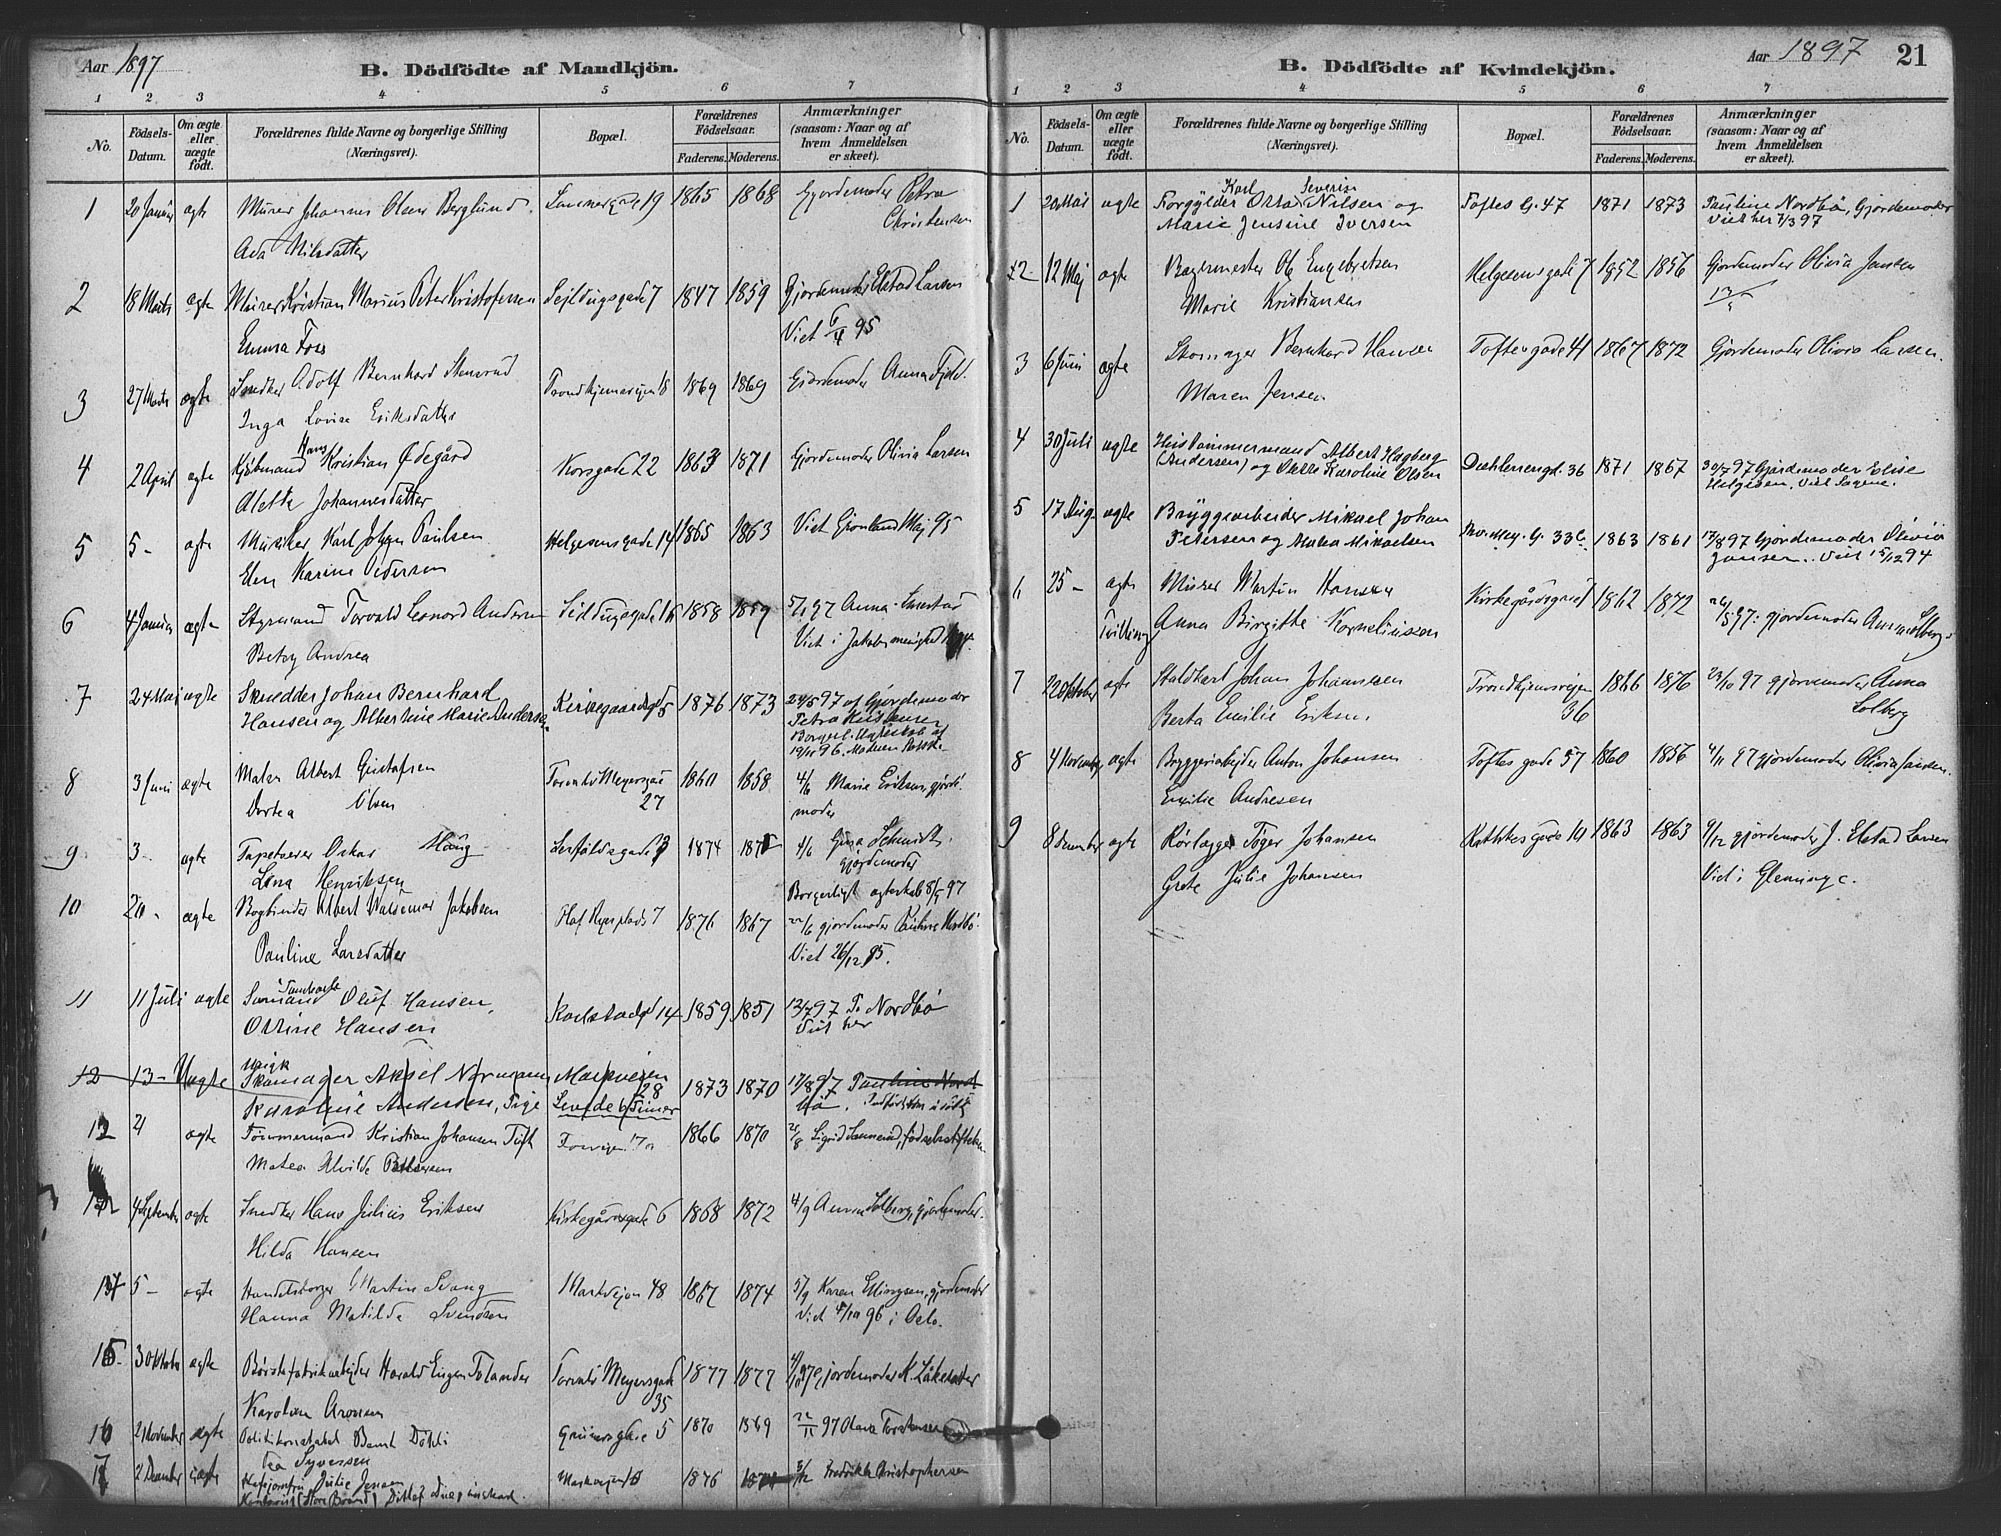 Aar 1897
B. Dödfödte af Mandkjön.
1 2 3 4 5 6 7
No.
Födsels-Datum.
Om ægte eller uægte födt.
Forældrenes fulde Navne og borgerlige Stilling (Næringsvei).
Bopæl.
Forældrenes Födselsaar.
Faderens. Moderens.
Anmærkninger (saasom: Naar og af hvem Anmeldelsen er skeet).
1 20 Januar ægte Murer Johannes Olsen Berglund 19 1865 1868 Gjordemoder Petra
Ada Nilsdatter Christensen
2 18 Marts ægte Murer Kristian Marius Peter Kristofersen Seildugsgade 7 1847 1859 Gjordemoder Elstad Larsen
Emma Foss Viet 6/4 95
3 27 Marts ægte Snedker Adolf Bernhard Stensrud Trondhjemsveien 18 1869 1869 Gjordemoder Anna Fjeld
Inga Lovise Eriksdatter
4 2 April ægte Kjöbmand Hans Kristian Ødegård Korsgade 22 1863 1871 Gjordemoder Olivia Larsen
Aletta Johannesdatter
5 5 - ægte Musiker Karl Johan Paulsen Helgesensgade 14 1865 1863 Viet Grönland Maj 95
Elen Karine Pedersen
6 4 Januar ægte Styrmand Torvald Leonard Andersen Seildugsgade 16 1858 1859 5/1 97 Anna
Betzy Andrea Viet i Jakobs menighed
7 24 Mai ægte Skrædder Johan Bernhard Kirkegaardsgd 5 1876 1873 24/5 97 af Gjordemoder
Hansen og Albertine Marie Andersen Petra Kristensen
Borgerl. Ægteskab af
19/11 96.
8 3 Juni ægte Maler Albert Gustafsen Torvald Meyersgade 27 1860 1858 4/6 Marie Eriksen, gjordemoder
Dortea Olsen
9 3 - ægte Tapetserer Oskar Haug 1874 4/6 Gina Schmidt, gjordemoder
Lina Henriksen Borgerligt ægteskab 8/5 97
10 20 - ægte Bogbinder Albert Valdemar Jakobsen Olaf Ryesplads 7 1876 1867 22/6 gjordemoder Pauline Nordbö
Pauline Larsdatter Viet 26/12 95.
11 11 Juli ægte Sömand Oluf Hansen, Karlstadgd 14 1859 1851 12/7 97 P. Nordbö
Ottine Hansen Viet her
12 13 - Uægte Skomager Aksel Markveien 28 1873 1870 17/8 97 Pauline Nordbö.
Karoline Andersen, Pige Levede 6 Timer
12 21 ægte Tömmermand Kristian Johansen Toft 1866 1870 21/8 Sigrid
Matea Alvilde Pettersen
13 4 September ægte Snedker Hans Julius Eriksen Kirkegårdsgade 6 1868 1872 4/9 Anna Solberg, gjordemoder
Hilda Hansen
14 5 - ægte Handelsborger Martin Svang Markveien 48 1867 1874 5/9 Karen Ellingsen, gjordemoder
Hanna Matilda Svendsen Viet 4/10 96 i Oslo.
15 3 Oktober ægte Börstefabrikarbejder Harald Eugen Tolander Torvald Meyersgade 35 1877 1877 4/10 97 Gjordemoder
Karoline Aronsen
16 21 November ægte Politikonstabel Bernt Döhli Grünersgade 5 1870 1869 22/11 97 Olava Torstensen
Tea Syversen
17 2 December uægte Julie Jensen Markveien 15 1876 3/12 Fredrikke Kristophersen

Aar 1897 21
B. Dödfödte af Kvindekjön.
1 2 3 4 5 6 7
No.
Födsels-Datum.
Om ægte eller uægte födt.
Forældrenes fulde Navne og borgerlige Stilling (Næringsvei).
Bopæl.
Forældrenes Födselsaar.
Faderens. Moderens.
Anmærkninger (saasom: Naar og af hvem Anmeldelsen er skeet).
1 20 Mai ægte Forgylder Karl Otto Severin Nilsen og Toftes G. 47 1871 1873 Pauline Nordbö, Gjordemoder
Marie Jensine Iversen Viet her 7/3 97
2 12 Maj ægte Bagermester Ole Engebretsen Helgesensgade 7 1852 1856 Gjordemoder Olivia Jansen
Marie Kristiansen 13/5
3 6 Juni ægte Skomager Bernhard Hansen Toftesgade 41 1867 1872 Gjordemoder Olivia Larsen.
Maren Jensen
4 30 Juli ægte Hustömmermand Albert Hagberg Dæhlenengd. 36 1871 1867 30/7 97 Gjordemoder Elise
(Andersen) og Karoline Olsen Helgesen, Viet Sagene.
5 17 Aug. ægte Bryggearbeider Mikael Johan Thv. Mey. G. 33 C. 1863 1861 17/8 97 Gjordemoder Olivia
Petersen og Malea Mikaelsen Jansen. Viet 15/12 94
6 25 - ægte Murer Martin Hansen Kirkegårdsgade 1 1862 1872 26/8 97: gjordemoder Anna Solberg
Tvilling Anna Birgitte Korneliussen
7 22 Oktober ægte Staldkarl Johan Johansen Trondhjemsvejen 36 1866 1876 23/10 97 gjordemoder Anna Solberg
Berta Emilie Eriksen
8 4 November ægte Bryggeriarbejder Anton Johansen Toftes gade 57 1860 1856 4/11 97 gjordemoder Olivia Jansen.
Emilie Andresen
9 8 December ægte Rörlægger Töger Johansen Rathkes gade 14 1863 1863 9/12 gjordemoder J. Elstad Larsen
Grete Julie Johansen Viet i Glemminge.